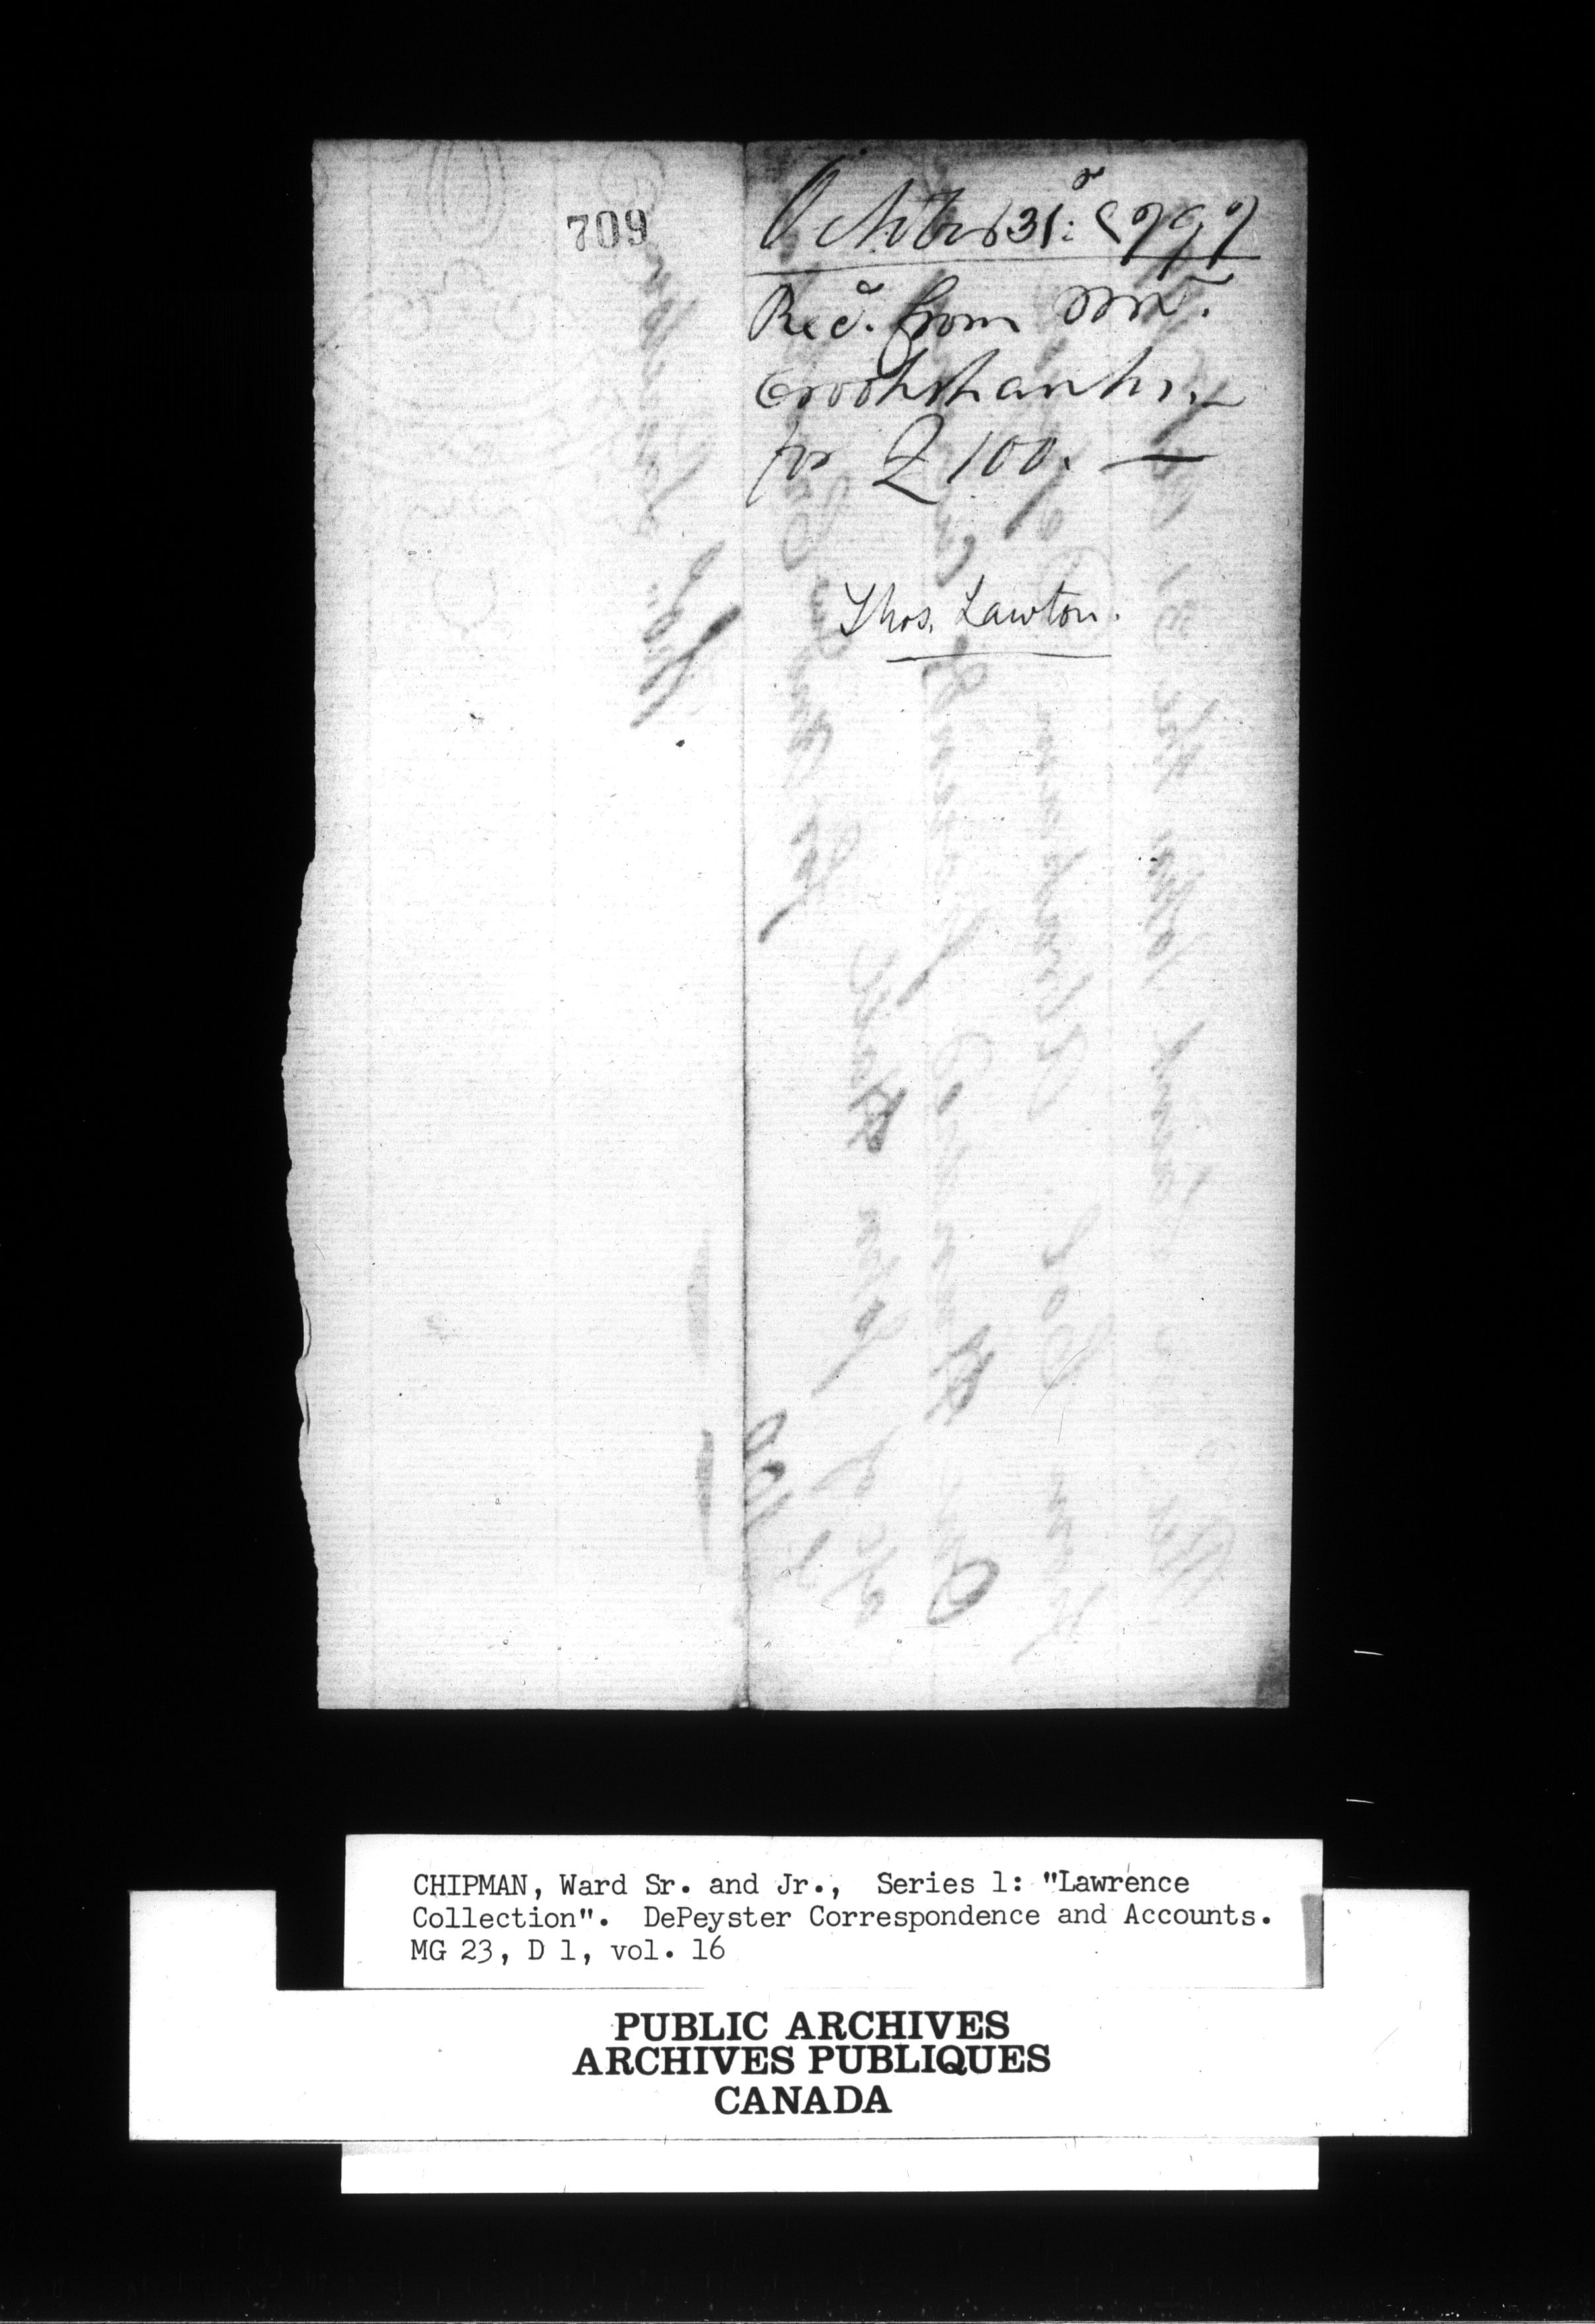 709
October 31st. 1797
Recd. from Mr.
Crookshanks.—
for £100.—
Thos. Lawton.
CHIPMAN, Ward Sr. and Jr., Series 1: "Lawrence
Collection". DePeyster Correspondence and Accounts.
MG 23, D 1, vol. 16
PUBLIC ARCHIVES
ARCHIVES PUBLIQUES
CANADA